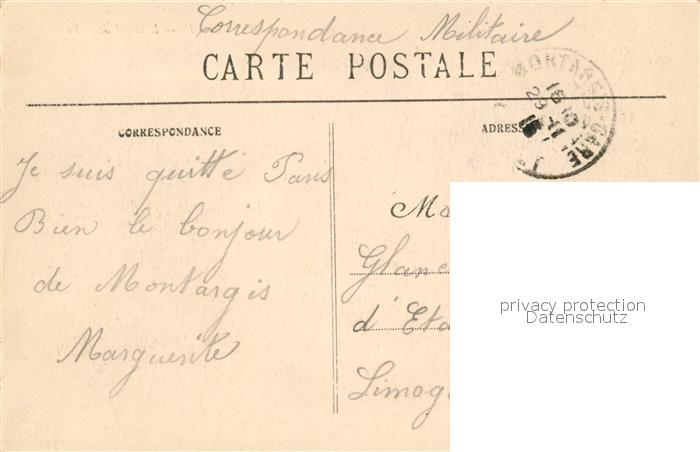 Correspondance Militaire
CARTE POSTALE
MONTARGIS-GARE
16 10
23 -11
15
CORRESPONDANCE
ADRESS
Je suis quitté Paris
Bien le bonjour
de Montargis
Marguerite
Ma
Glane
d'Eta
Limog
privacy protection
Datenschutz